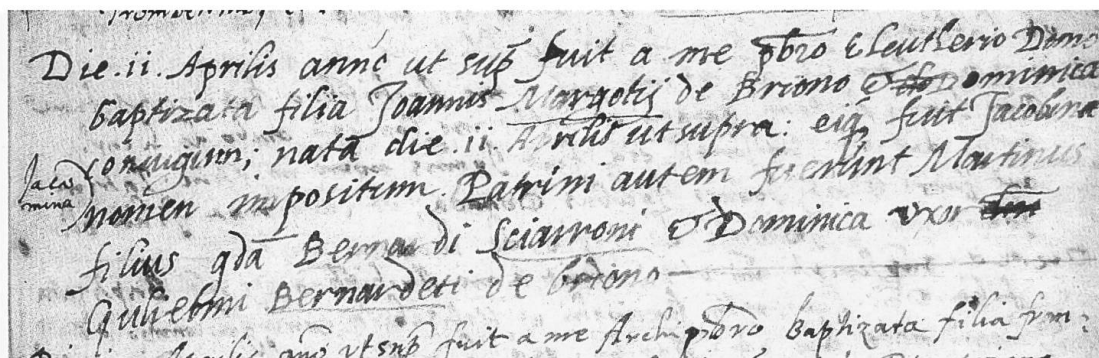 Die .ii. Aprilis anno ut sup fuit a me pbro Eleutherio Dono
baptizata filia Joannis Margotij de Briono & Dominica
coniugum; nata die .ii. Aprilis ut supra: eiq fuit Jacobina
Jaco
mina
nomen impositum. Patrini autem fuerunt Martinus
filius qda Bernardi Sciarroni & Dominica uxor
Gulielmi Bernardeti de briono
Aprilis ano ut sup fuit a me Archipbro baptizata filia